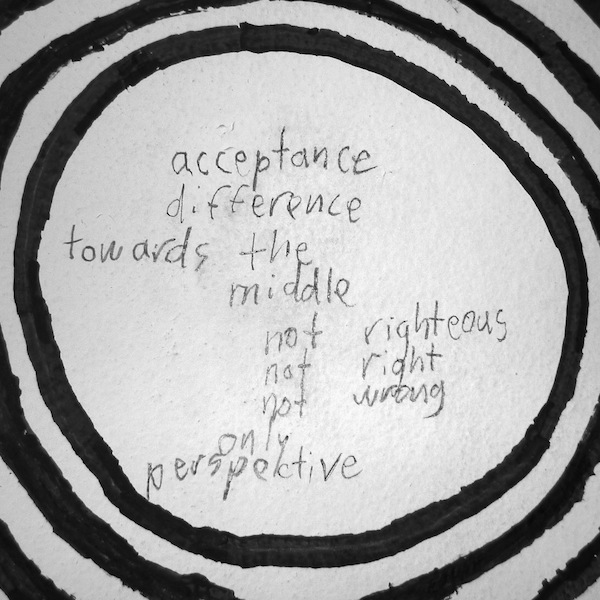 acceptance
difference
towards the
middle
not righteous
not right
not wrong
only
perspektive